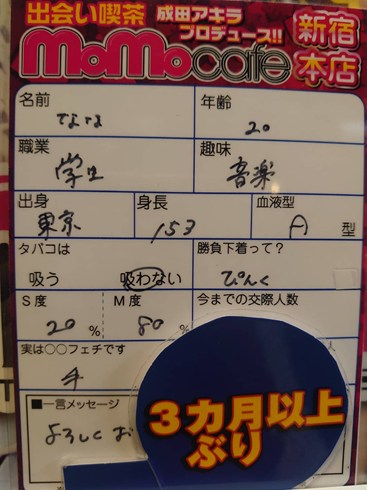 出会い喫茶 成田アキラ
プロデュース!!
新宿
本店
MoMocafe
名前
年齢
20
職業
学生
趣味
音楽
出身
東京
身長
153
血液型
A 型
タバコは
吸う 吸わない
勝負下着って?
ぴんく
S度
20 %
M度
80 %
今までの交際人数
実は○○フェチです
手
■一言メッセージ
よろしくお
3カ月以上
ぶり